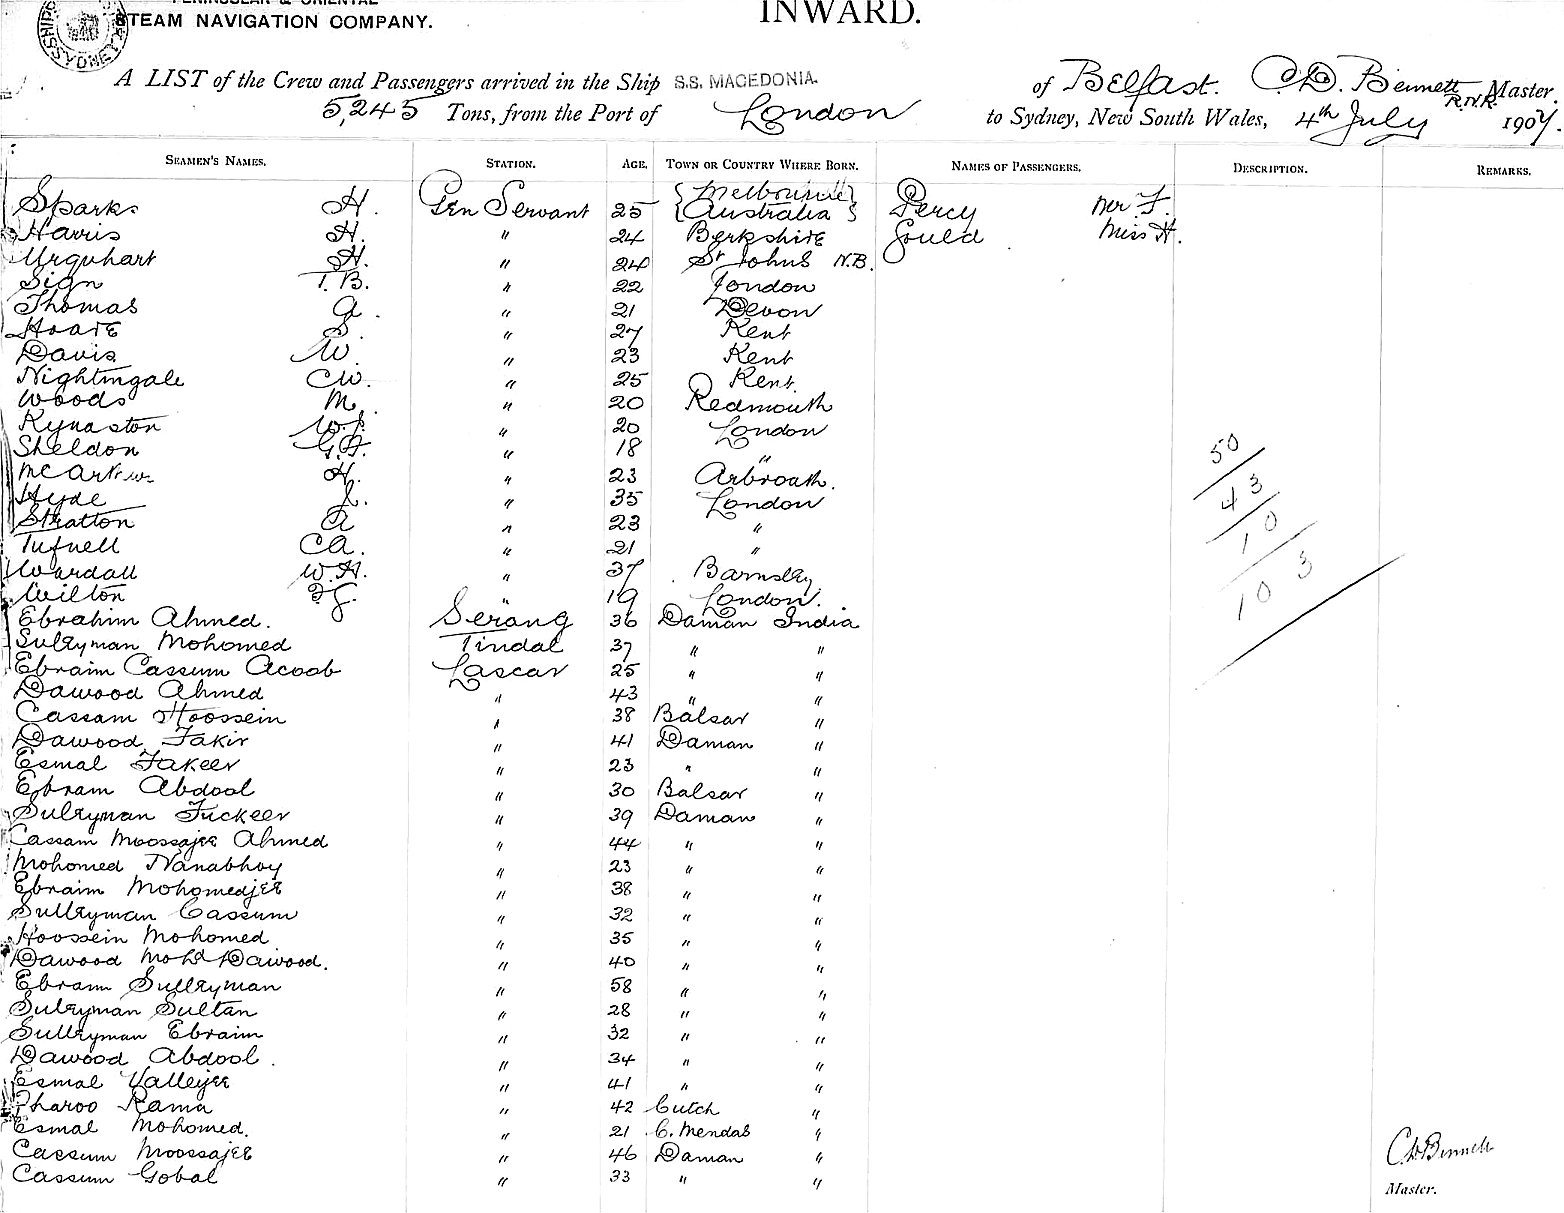 PENINSULAR & ORIENTAL
STEAM NAVIGATION COMPANY.
INWARD.
SYDNEY
A LIST of the Crew and Passengers arrived in the Ship S.S. MACEDONIA. of Belfast. C.D. Bennett R.N.R. Master.
5,245 Tons, from the Port of London to Sydney, New South Wales, 4th July 1907.
SEAMEN'S NAMES. STATION. AGE. TOWN OR COUNTRY WHERE BORN. NAMES OF PASSENGERS. DESCRIPTION. REMARKS.
Sparks H. Gen Servant 25 { Melbourne Australia } Percy Mr F.
Harris H. " 24 Berkshire Gould Miss H.
Urquhart H. " 24 St Johns N.B.
Sign T.B. " 22 London
Thomas A. " 21 Devon
Hoare S. " 27 Kent
Davis W. " 23 Kent
Nightingale C.W. " 25 Kent.
Woods M. " 20 Redmouth
Kynaston W.J. " 20 London
Sheldon G.H. " 18 "
McArthur H. " 23 Arbroath.
Hyde J. " 35 London
Stratton A " 23 "
Tufnell C.A. " 21 "
Wardall W.H. " 37 Barnsley
Wilton F.G. " 19 London.
Ebrahim Ahmed. Serang 36 Daman India
Suleyman Mohomed Tindal 37 " "
Ebraim Cassum Acoob Lascar 25 " "
Dawood Ahmed " 43 " "
Cassam Hoossein " 38 Balsar "
Dawood Fakir " 41 Daman "
Esmal Fakeer " 23 " "
Ebram Abdool " 30 Balsar "
Suleyman Fuckeer " 39 Daman "
Cassam Moossajee Ahmed " 44 " "
Mohomed Nanabhoy " 23 " "
Ebraim Mohomedjee " 38 " "
Sulleyman Cassum " 32 " "
Hoossein Mohomed " 35 " "
Dawood Mohd Dawood. " 40 " "
Ebram Sulleyman " 58 " "
Suleyman Sultan " 28 " "
Sulleyman Ebraim " 32 " "
Dawood Abdool. " 34 " "
Esmal Vallejee " 41 " "
Pharoo Rama " 42 Cutch "
Esmal Mohomed. " 21 C. Mendas "
Cassum Moossajee " 46 Daman "
Cassum Gobal " 33 " "
50
43
10
103
C.D. Bennett
Master.